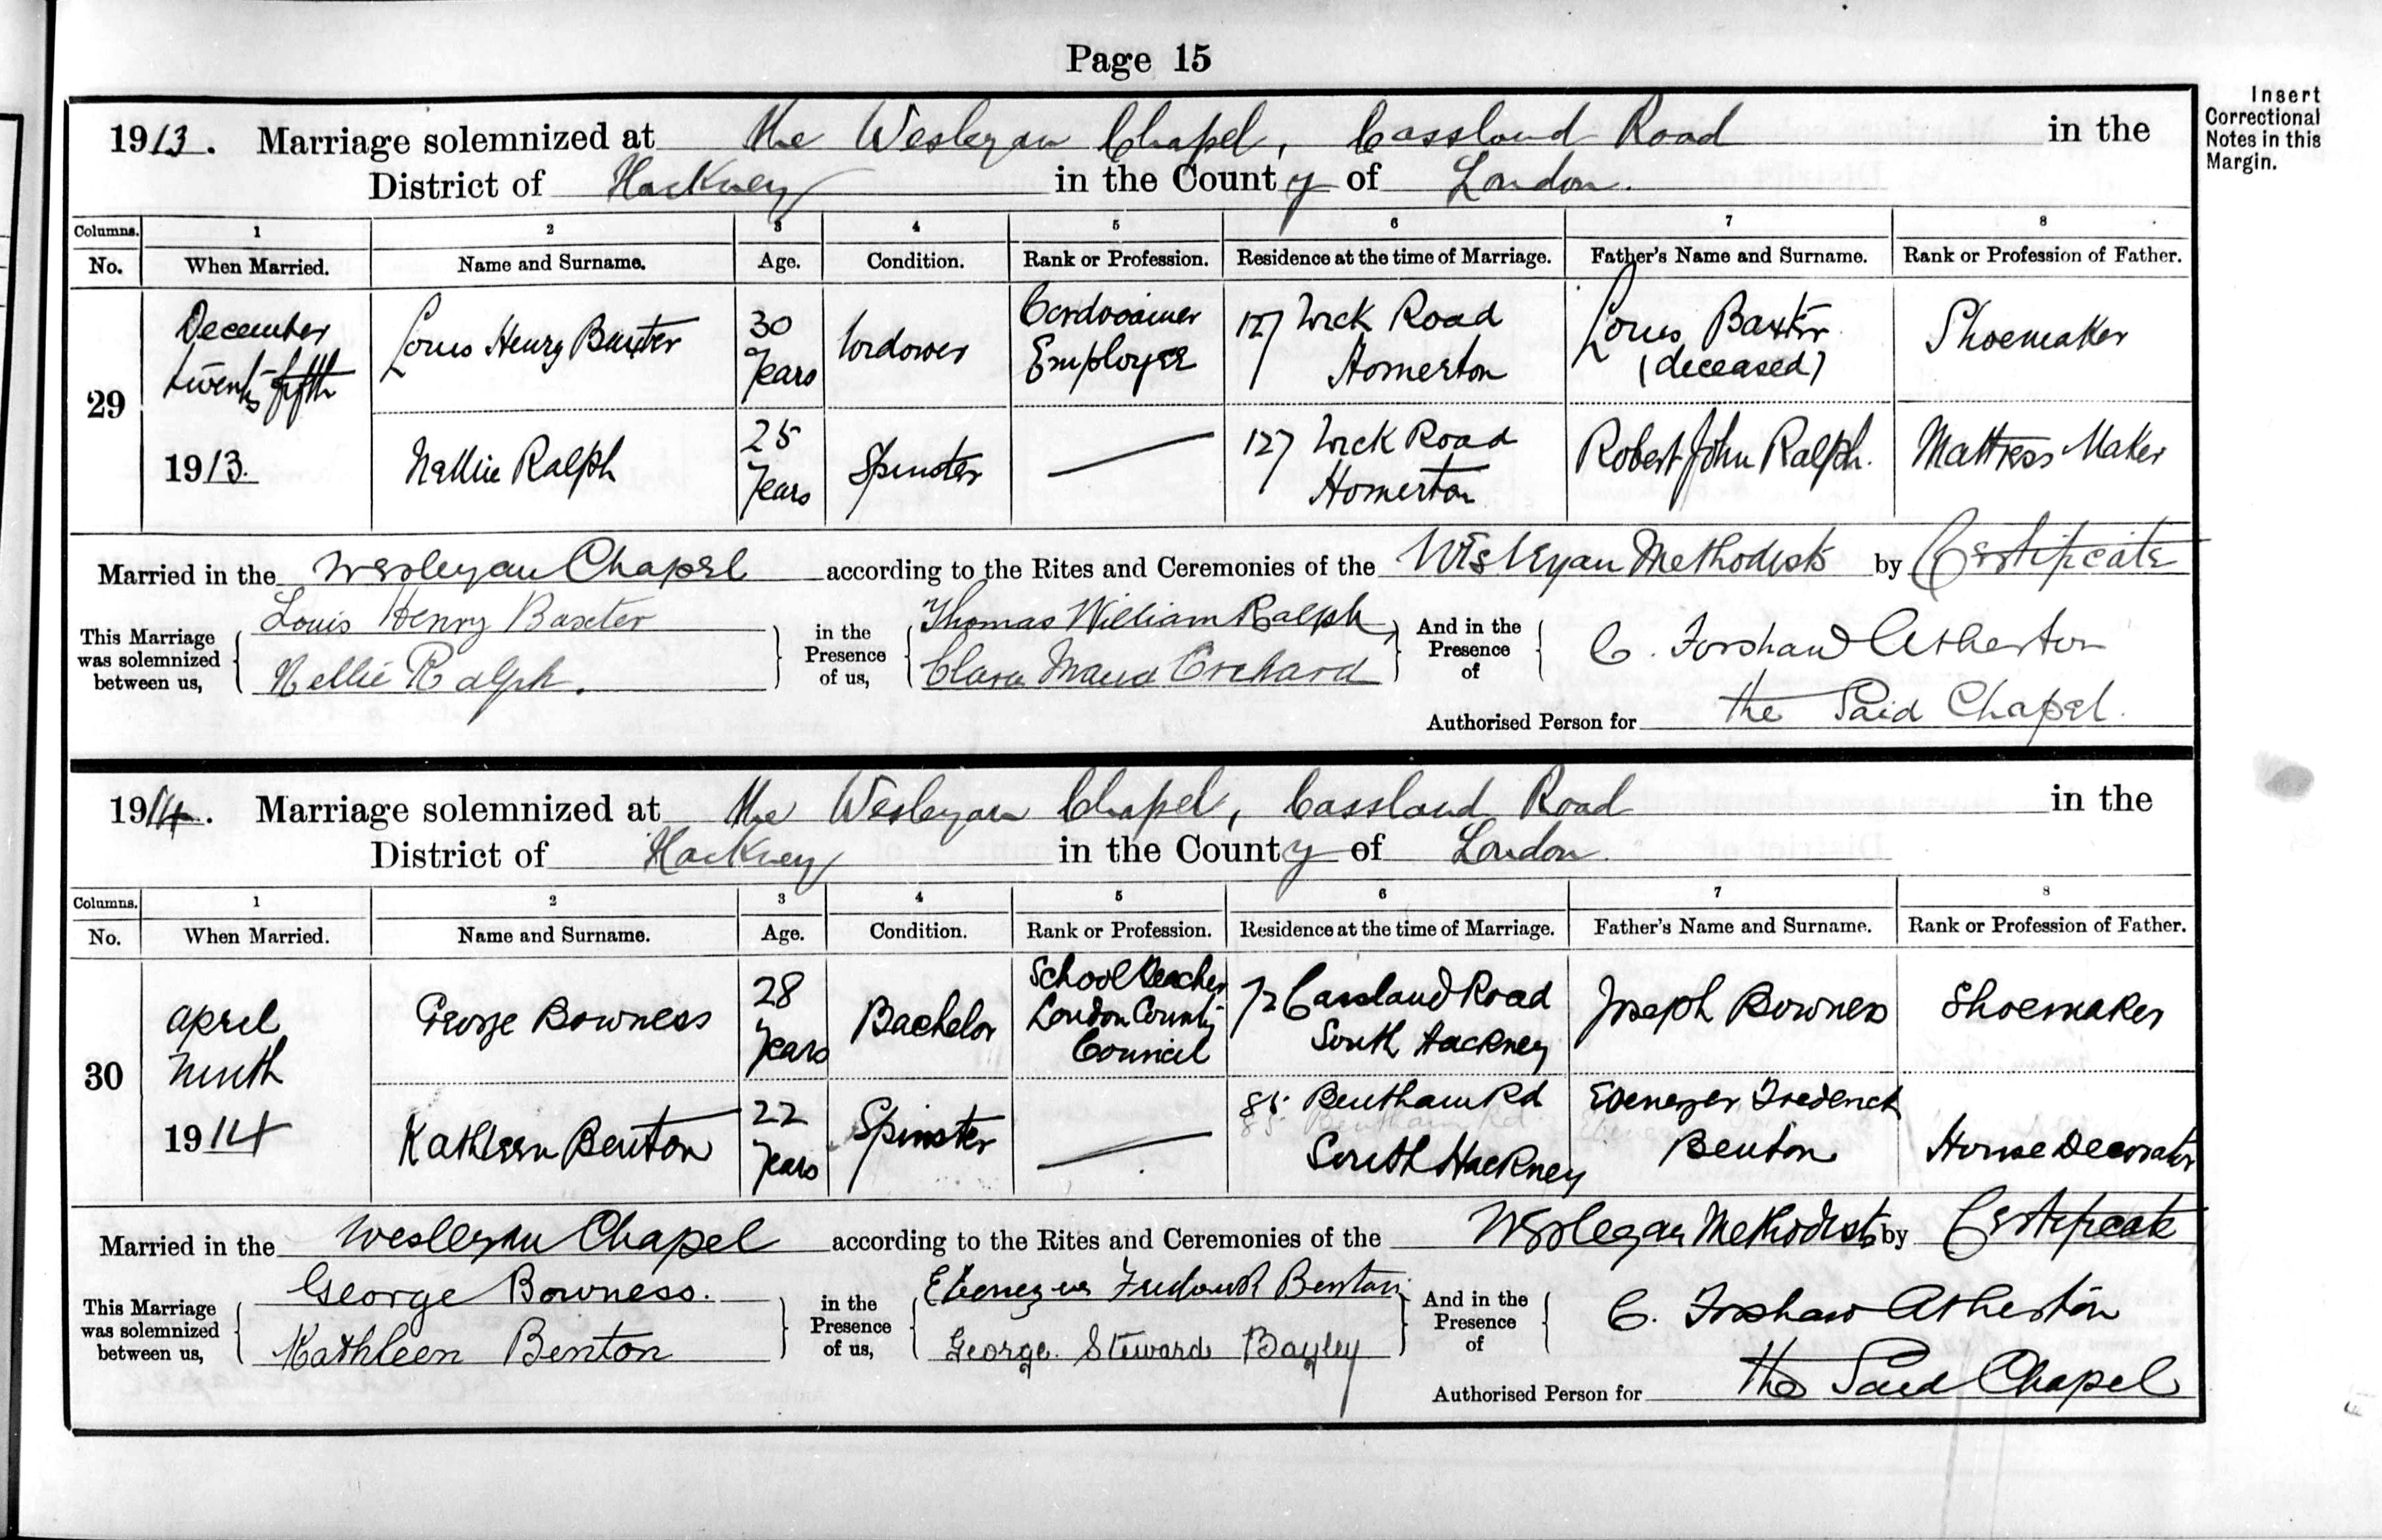 Page 15
Insert
Correctional
Notes in this
Margin.
1913. Marriage solemnized at the Wesleyan Chapel, Cassland Road in the
District of Hackney in the County of London.
Columns. 1 2 3 4 5 6 7 8
No. When Married. Name and Surname. Age. Condition. Rank or Profession. Residence at the time of Marriage. Father's Name and Surname. Rank or Profession of Father.
29
December
twenty-fifth
1913.
Louis Henry Baxter
30
Years
Widower
Cordwainer
Employee
127 Wick Road
Homerton
Louis Baxter
(deceased)
Shoemaker
Nellie Ralph
25
Years
Spinster
127 Wick Road
Homerton
Robert John Ralph.
Mattress Maker
Married in the Wesleyan Chapel according to the Rites and Ceremonies of the Wesleyan Methodists by Certificate
This Marriage
was solemnized
between us,
Louis Henry Baxter
Nellie Ralph.
in the
Presence
of us,
Thomas William Ralph
Clara Maud Orchard
And in the
Presence
of
C. Forshaw Atherton
Authorised Person for the Said Chapel.
1914. Marriage solemnized at the Wesleyan Chapel, Cassland Road in the
District of Hackney in the County of London.
Columns. 1 2 3 4 5 6 7 8
No. When Married. Name and Surname. Age. Condition. Rank or Profession. Residence at the time of Marriage. Father's Name and Surname. Rank or Profession of Father.
30
April
Ninth
1914
George Bowness
28
Years
Bachelor
School Teacher
London County
Council
72 Cassland Road
South Hackney
Joseph Bowness
Shoemaker
Kathleen Benton
22
Years
Spinster
85 Bentham Rd
South Hackney
Ebenezer Frederick
Benton
House Decorator
Married in the Wesleyan Chapel according to the Rites and Ceremonies of the Wesleyan Methodists by Certificate
This Marriage
was solemnized
between us,
George Bowness.
Kathleen Benton
in the
Presence
of us,
Ebenezer Frederick Benton
George Steward Bayley
And in the
Presence
of
C. Forshaw Atherton
Authorised Person for the Said Chapel